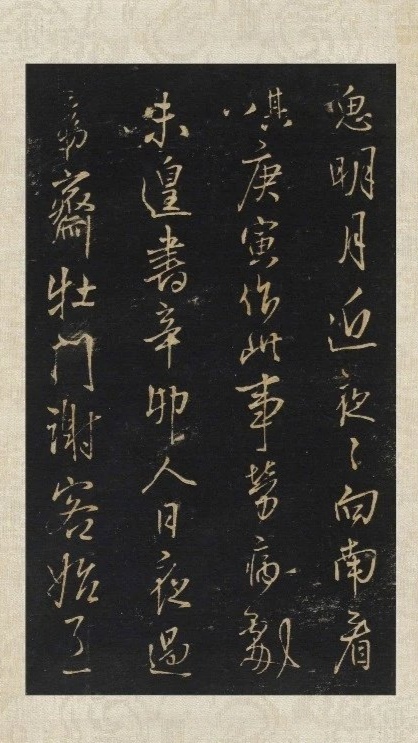 明月近夜〻向南看
其八
庚寅作此事勞病劇
未遑書辛卯人日夜過
齋杜門謝客始了一